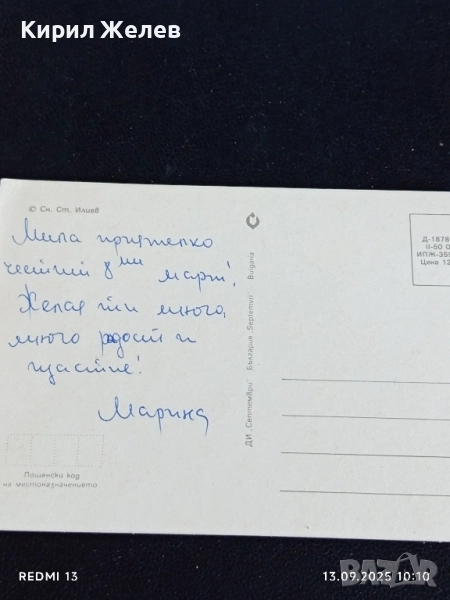 Кирил Желев
© Сн. Ст. Илиев
Мила приятелко
честит 8ми март!
Желая ти много,
много радост и
щастие!
Марина
Пощенски код
на местоназначението
ДИ „Септември" България „Septemvri" Bulgaria
Д-1878
II-50 0
ИПЖ-359
Цена 12
REDMI 13
13.09.2025 10:10
BAZAR